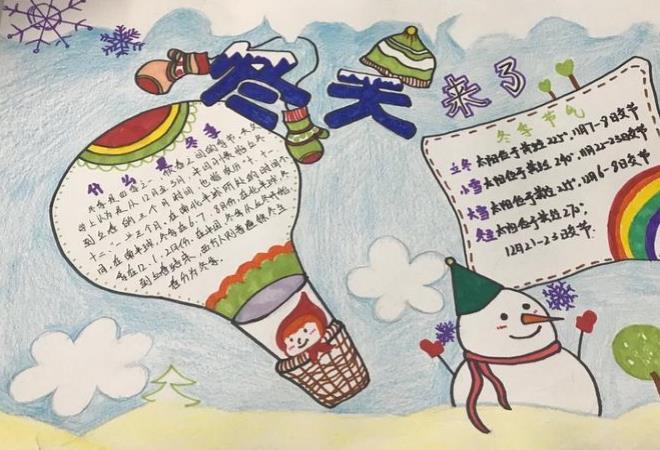 冬天来了
什么是冬季
冬季是四季之一，秋春之间的季节，天文
学上认为是从12月至3月，中国习惯指立冬
到立春的三个月时间，也指农历“十、十
十二”一共三个月。在南北半球所处的时间不
同，在南半球，冬季在6、7、8月份，在北半球，冬
季在12、1、2月份，在中国冬季从立冬开始，
到立春结束，西方人则普遍称冬至
春分为冬季。
冬季节气
立冬 太阳位于黄经225°，11月7-8日交节
小雪 太阳位于黄经240°，11月22-23日交节
大雪 太阳位于黄经255°，12月6-8日交节
冬至 太阳位于黄经270°，
12月21-23日交节.